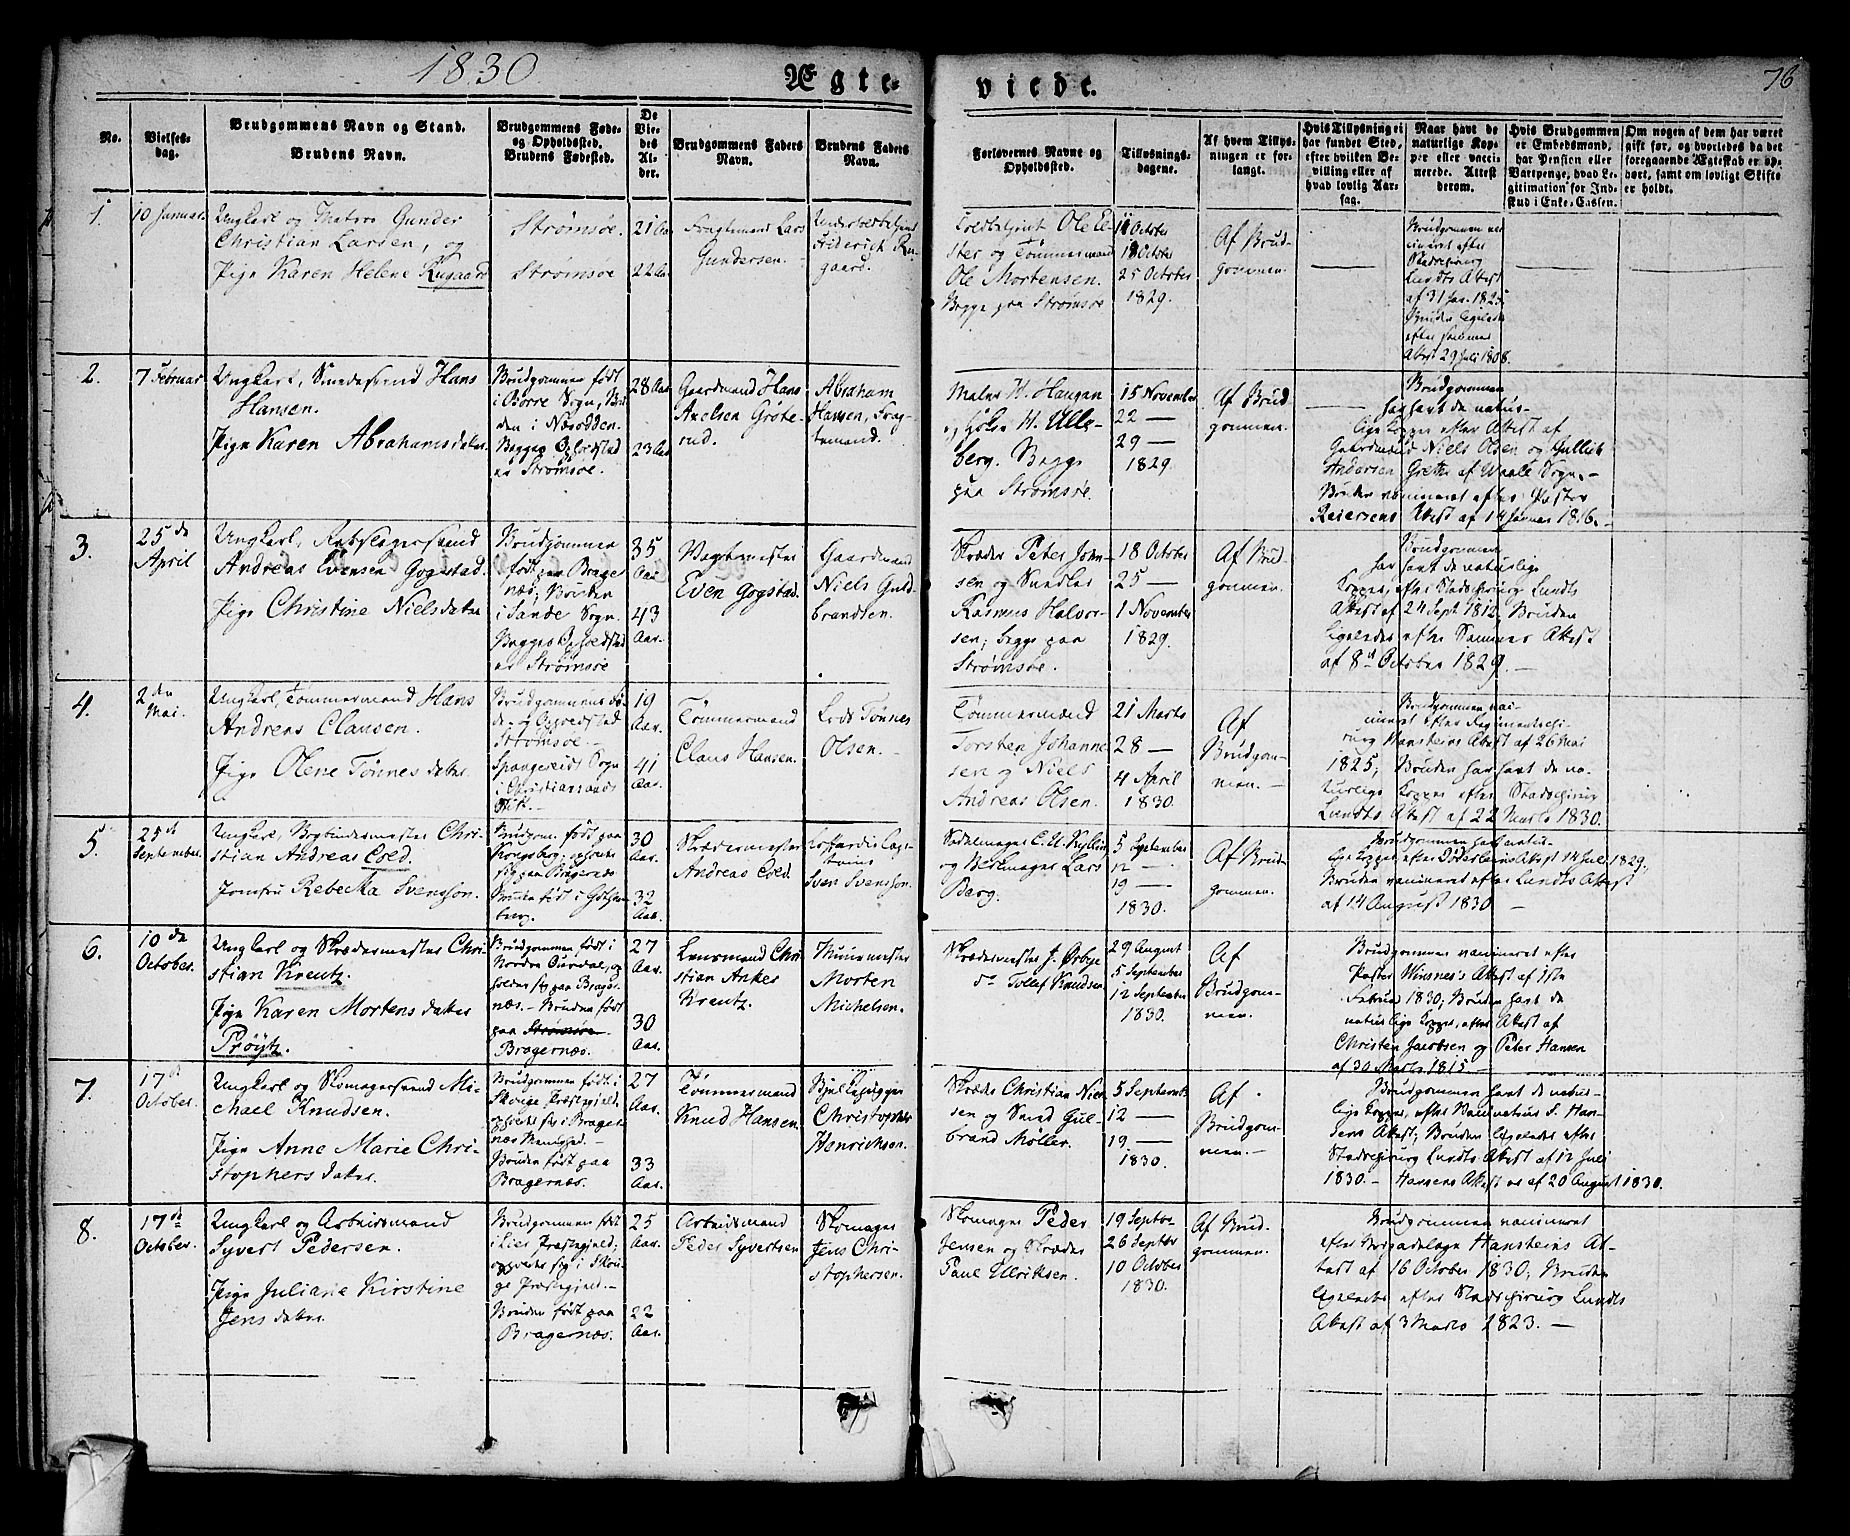 1830
Ægte-
viede.
76
No.
Vielses-
dag.
Brudgommens Navn og Stand.
Brudens Navn.
Brudgommens Føde-
og Opholdssted.
Brudens Fødested.
De
Vie-
des
Al-
der.
Brudgommens Faders
Navn.
Brudens Faders
Navn.
Forlovernes Navne og
Opholdssted.
Tillysnings-
dagene.
Af hvem Tillys-
ningen er for-
langt.
Hvis Tillysning ei
har fundet Sted,
efter hvilken Be-
villing eller af
hvad lovlig Aar-
sag.
Naar havt de
naturlige Kop-
per eller vacci-
nerede. Attest
derom.
Hvis Brudgommen
er Embedsmand,
har Pension eller
Vartpenge, hvad Le-
gitimation for Ind-
skud i Enke-Cassen.
Om nogen af dem har været
gift før, og hvorledes da det
foregaaende Ægteskab er op-
hørt, samt om lovligt Skifte
er holdt.
1.
10 Januar
Ungkarl og Gunder
Christian Larsen, og
Pige Karen Helene Rugaard
Strømsøe.
Strømsøe
21 Aar
22 Aar
Fragtemand Lars
Gundersen.
Friderich Ru-
gaard.
Toldbetjent Ole El-
ster og Tømmermand
Ole Mortensen.
Begge paa Strømsøe
11 October
18 October
25 October
1829.
Af Brud-
gommen.
Brudgommen vac-
cineret efter
Stadschirurg
Lundts Attest
af 31 Jan. 1825.
Bruden ligeledes
efter sammes
Attest 29 Juli 1808.
2.
7 Februar
Ungkarl, Smedesvend Hans
Hansen.
Pige Karen Abrahamsdatter.
Brudgommen født
i Borre Sogn, Bru-
den i Næsodden.
Begges Opholdssted
er Strømsøe.
28 Aar
23 Aar
Gaardmand Hans
Grote-
rud.
Abraham
Hansen, Frag-
temand.
Maler H. Haugen
og H. Ulle-
berg. Begge
paa Strømsøe.
15 November
22 —
29 —
1829.
Af Brud-
gommen.
Brudgommen
har havt de natur-
lige Kopper efter Attest af
Gaardmænd Niels Olsen og Gullich
Andersen Grette af Waale Sogn.-
Bruden vaccineret efter Pastor
Reiersens Attest af 14 Januar 1816.-
3.
25 de
April
Ungkarl, Rebslagersvend
Andreas Evensen Gogstad.
Pige Christine Nielsdatter
Brudgommen
født paa Brager-
næs; Bruden
i Sande Sogn.
Begges Opholdssted
er Strømsøe
35
Aar
43
Aar.
Vagtmester
Even Gogstad.
Gaardmand
Niels Guld-
brandsen.
Skræder Peter John-
sen og Snedker
Rasmus Halvor-
sen; begge paa
Strømsøe.
18 October
25 —
1 November
1829.
Af Brud-
gommen.
Brudgommen
har havt de naturlige
Kopper, efter Stadschirurg Lundts
Attest af 24 Sept. 1812. Bruden
ligeledes efter Sammes Attest
af 8d October 1829. —
4.
2den
Mai.
Ungkarl, Tømmermand Hans
Andreas Clausen.
Pige Olene Tønnesdatter.
Brudgommens Fø-
de- og Opholdssted
Strømsøe.-
Spangereids Sogn
i Christiansands
Stift.-
19
Aar.
41
Aar.
Tømmermand
Claus Hansen.
Lods Tønnes
Olsen.
Tømmermænd
Torsten Johanne-
sen og Niels
Andreas Olsen.
21 Marts
28 —
4 April
1830.
Af
Brudgom-
men.-
Brudgommen vac-
cineret efter Regimentschi-
rurg Hansteins Attest af 26 Mai
1825; Bruden har havt de na-
turlige Kopper efter Stadschirurg
Lundts Attest af 22 Marts 1830.
5.
25 d
September.
Ungkarl, Bogbindermester Chri-
stian Andreas Coed.
Jomfru Rebecka Svensson.
Brudgom. født paa
Kongsberg, opholder
sig paa Bragernæs
Bruden født i Gothen-
burg.
30
Aar.
32
Aar.
Skrædermester
Andreas Coed.
Sven Svensson.
Sadelmager C. U. Kyllin
og Lars
Berg.
5 September
12 —
19 —
1830.
Af Brud-
gommen.
Brudgommen havt natur-
lige Kopper, efter Døderleins Attest 14 Juli 1829.
Bruden vaccineret efter Lundts Attest
af 14 August 1830 —
6.
10 de
October.
Ungkarl og Skrædermester Chri-
stian Kreutz.
Pige Karen Mortensdatter
Prøytz.
Brudgommen født i
Nordre Ourdal, op-
holder sig paa Brager-
næs.- Bruden født
paa Strømsøe
Bragernæs.
27
Aar.
30
Aar.
Lensmand Chri-
stian Ancher
Kreutz.
Muurmester
Morten
Michelsen.
Skrædermester J. Ørbye
do Tollef Knudsen
29 August
5 September
12 September
1830.
Af
Brudgom-
men.
Brudgommen vaccineret efter
Pastor Winsnes's Attest af 1ste
Februar 1830; Bruden havt de
naturlige Kopper, efter Attest af
Christen Jacobsen og Peter Hansen
af 30 Marts 1815 —
7.
17 d
October.
Ungkarl og Skomagersvend Mi-
chael Knudsen.
Pige Anne Marie Chri-
stophersdatter.
Brudgommen født i
Skoge Præstegjeld,
opholder sig i Brager-
næs Menighed.-
Bruden født paa
Bragernæs.
27
Aar.
33
Aar.
Tømmermand
Knud Hansen.
Christopher
Henrichsen.
Skræder Christian Niel-
sen og Smed Gul-
brand Møller.
5 Septembr.
12 —
19 —
1830.
Af
Brudgom-
men.
Brudgommen havt de natur-
lige Kopper, efter Vaccinateur S. Han-
sens Attest; Bruden ligeledes efter
Stadschirurg Lundts Attest af 12 Juli
1830.- Hansens Attest er af 20 August 1830.
8.
17 de
October.
Ungkarl og Arbeidsmand
Syvert Pedersen.
Pige Juliane Kirstine
Jensdatter.
Brudgommen født
i Lier Præstegjeld;
opholder sig i Sko-
ge Præstegjeld.-
Bruden født paa
Bragernæs.
25
Aar.
22
Aar.
Arbeidsmand
Peder Syvertsen
Skomager
Jens Chri-
stophersen.
Skomager Peder
Jensen og Skræder
Paul Ulriksen.
19 Septbr
26 Septbr
10 October
1830.
Af Brud-
gommen.
Brudgommen vaccineret
efter Brigadelæge Hansteins At-
test af 16 October 1830; Bruden
ligeledes efter Stadschirurg Lundts
Attest af 3 Marts 1823. —